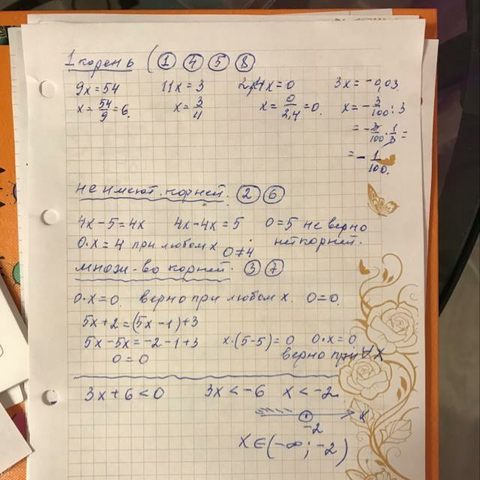 1 корень (① ④ ⑤ ⑧
9x = 54   11x = 3   2,4x = 0   3x = -0,03
x = 54/9 = 6.   x = 3/11   x = 0/2,4 = 0.   x = -3/100 : 3
= -3/100 · 1/3 =
= -1/100.
не имеют корней. ② ⑥
4x - 5 = 4x   4x - 4x = 5   0 = 5 не верно
0·x = 4 при любом x   0 ≠ 4   нет корней.
множ-во корней. ③ ⑦
0·x = 0.   верно при любом x.   0 = 0.
5x + 2 = (5x - 1) + 3
5x - 5x = -2 - 1 + 3   x·(5-5) = 0   0·x = 0
0 = 0   верно при ∀ x
3x + 6 < 0   3x < -6   x < -2
-2   x
x ∈ (-∞ ; -2)